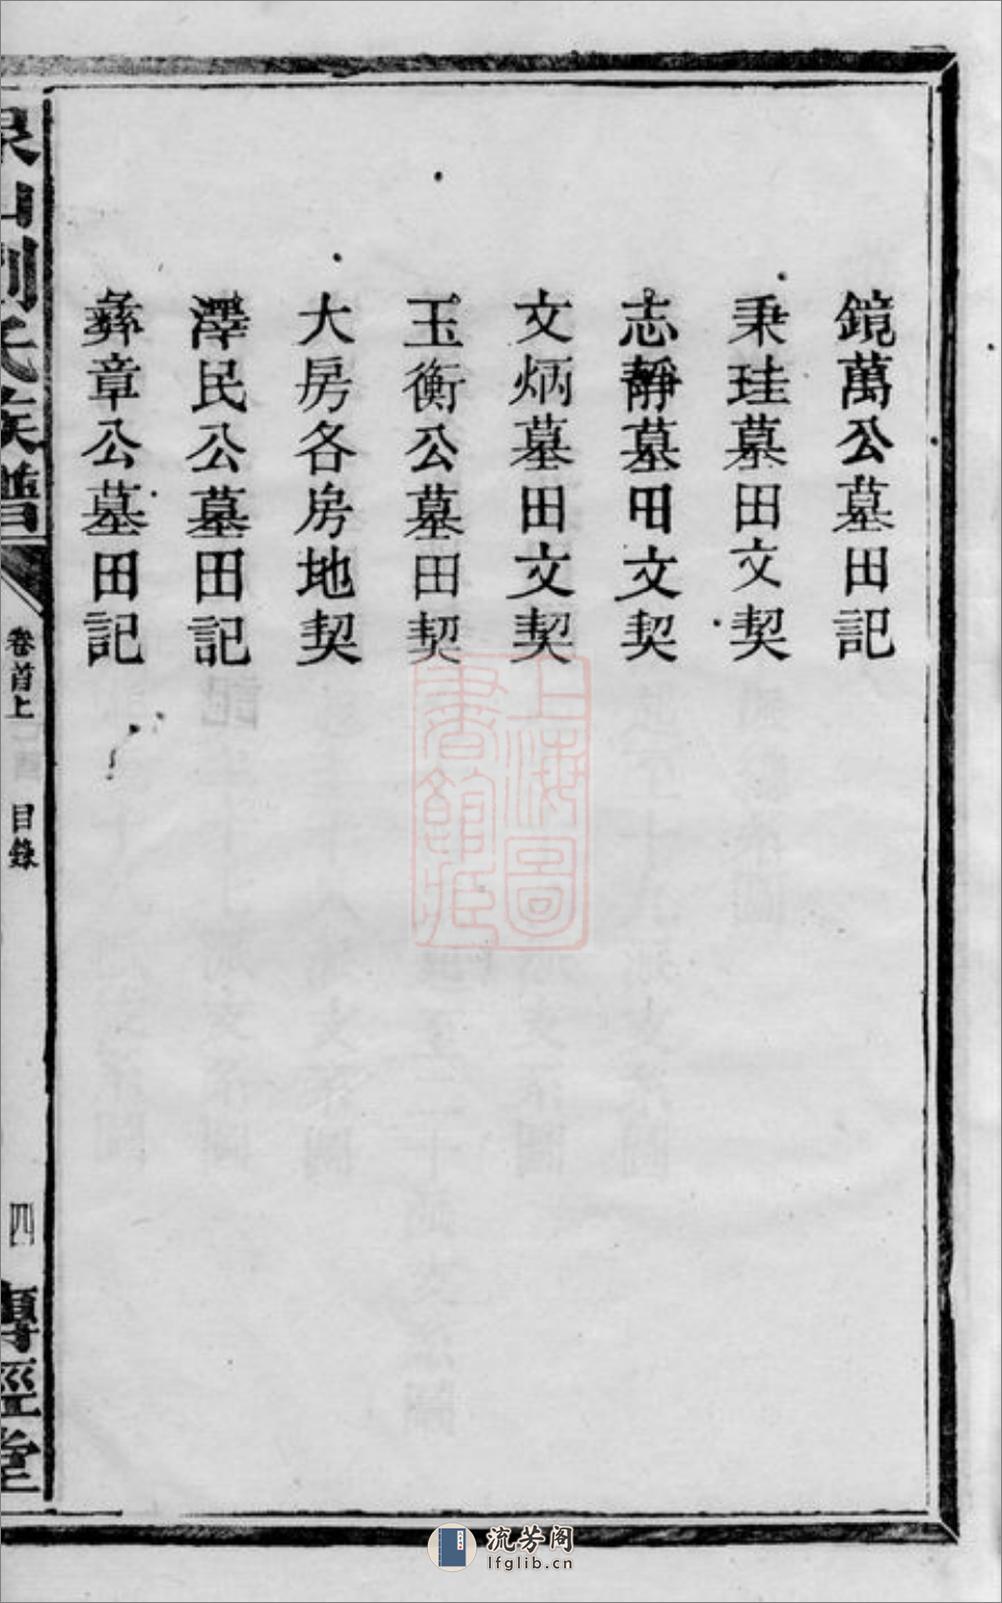 鏡萬公墓田記
秉珪墓田文契
志靜墓田文契
文炳墓田文契
玉衡公墓田契
大房各房地契
澤民公墓田記
彝章公墓田記
山劉氏族譜
卷首上
目錄
四
傳經堂
上海圖書館藏
流芳阁
lfglib.cn